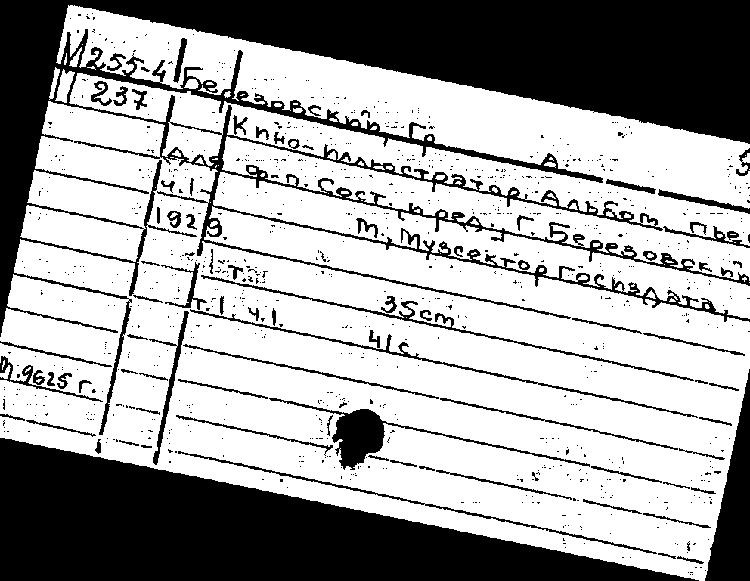 М 255-4
237
Березовский, Гр. А.
Кино-иллюстратор. Альбом пьес
для ф-п. Сост. и ред.: Г. Березовский
ч.1-
М., Музсектор Госиздата,
1929.
1 т. 35 cm.
т.1. ч.1. 41 с.
п.9625 г.